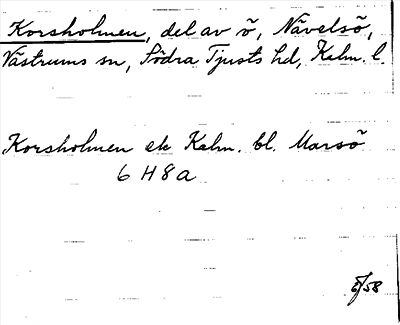 Korsholmen, del av ö, Nävelsö,
Västrums sn, Södra Tjusts hd, Kalm. l.
Korsholmen ek Kalm. bl. Marsö
6 H 8 a
5/58